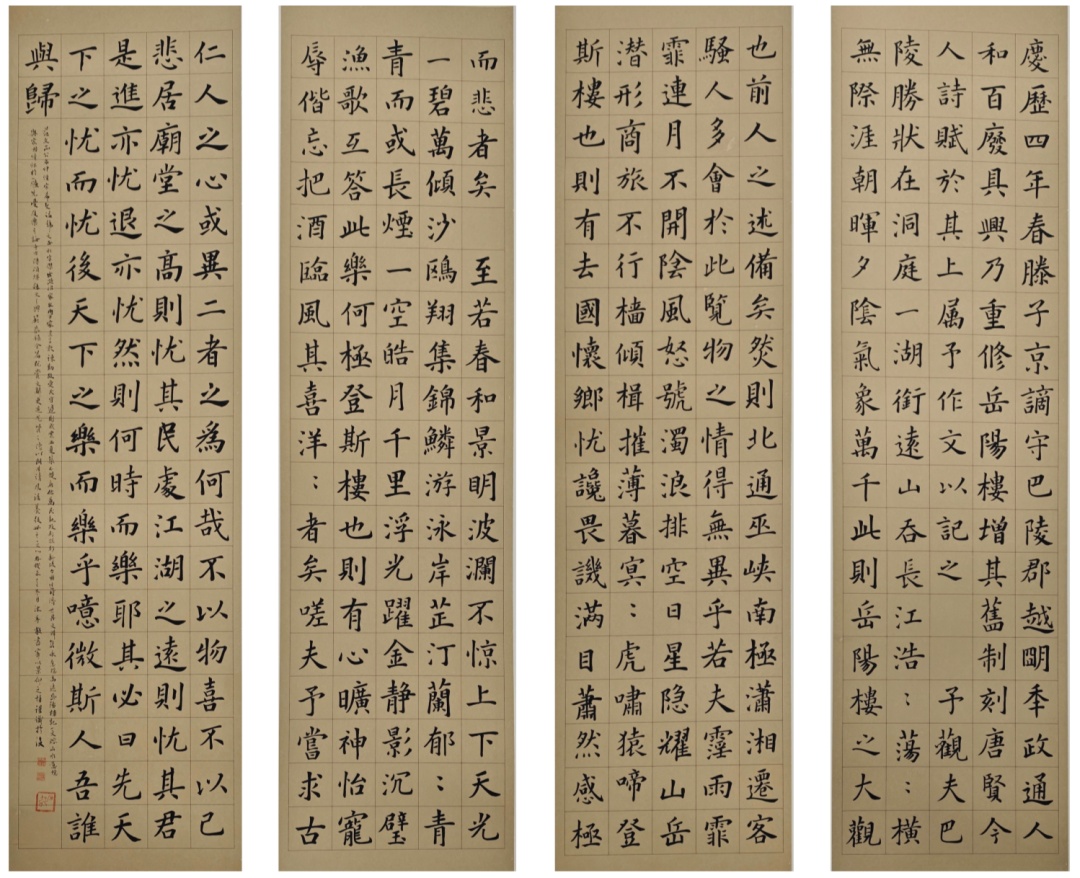 慶歷四年春滕子京謫守巴陵郡越眀秊政通人
和百廢具興乃重修岳陽樓增其舊制刻唐賢今
人詩賦於其上属予作文以記之　予觀夫巴
陵勝狀在洞庭一湖銜遠山吞長江浩:蕩:橫
無際涯朝暉夕陰氣象萬千此則岳陽樓之大觀
也前人之述備矣然則北通巫峽南極瀟湘遷客
騷人多會於此覽物之情得無異乎若夫霪雨霏
霏連月不開陰風怒號濁浪排空日星隐耀山岳
潜形商旅不行檣傾楫摧薄暮冥:虎嘯猿啼登
斯樓也則有去國懷鄉忧讒畏譏满目蕭然感極
而悲者矣　至若春和景眀波瀾不惊上下天光
一碧萬傾沙鷗翔集錦鱗游泳岸芷汀蘭郁:青
青而或長煙一空皓月千里浮光躍金静影沉璧
漁歌互答此樂何極登斯樓也則有心曠神怡寵
辱偕忘把酒臨風其喜洋:者矣嗟夫予嘗求古
仁人之心或異二者之為何哉不以物喜不以己
悲居廟堂之高則忧其民處江湖之遠則忧其君
是進亦忧退亦忧然則何時而樂耶其必曰先天
下之忧而忧後天下之樂而樂乎噫微斯人吾誰
與歸